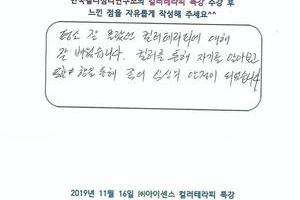 한국컬러심리연구소의 컬러테라피 특강 수강 후
느낀 점을 자유롭게 작성해 주세요^^
평소 잘 몰랐던 컬러테라피에 대해
잘 배웠습니다. 컬러를 통해 자기를 알아보고
통해 심신의 안정이 되었습니다
2019년 11월 16일 ㈜아이센스 컬러테라피 특강